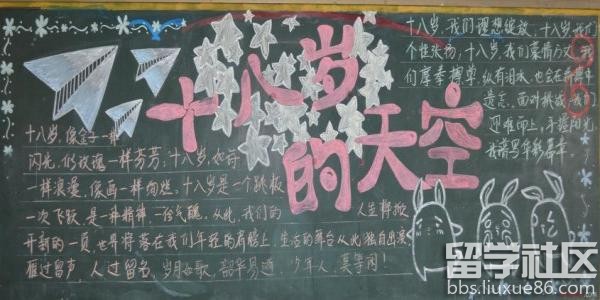 十八岁的天空
十八岁,我们理想绽放,十八岁,我们
个性张扬,十八岁,我们豪情万丈,我
们厚重搏击,纵有泪水,也会在
遗忘。面对挑战,我们
迎难而上,手握阳光
我请写华彩
十八岁,像金子一样
闪光,似玫瑰一样芬芳,十八岁,如诗
一样浪漫,像画一样绚烂。十八岁是一个跳板
一次飞跃,是一种精神,一份气魄,从此,我们的 人生将掀
开新的一页,也将落在我们年轻的肩膀上,生活的舞台从此独自出演
雁过留声,人过留名,岁月如歌,韶华易逝,少年人,莫等闲!
留学社区
bbs.liuxue86.com